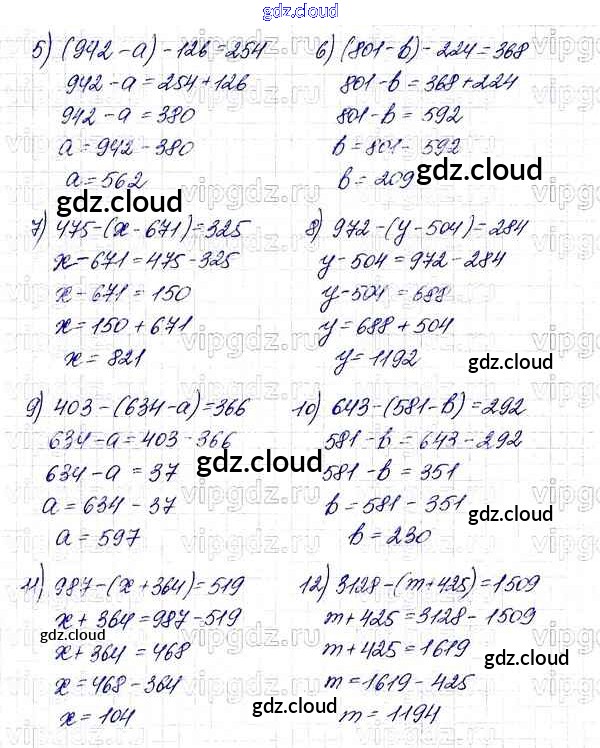 gdz.cloud
5) (942-a)-126=254
942-a=254+126
942-a=380
a=942-380
a=562
6) (801-b)-224=368
801-b=368+224
801-b=592
b=801-592
b=209
gdz.cloud
gdz.cloud
7) 475-(x-671)=325
x-671=475-325
x-671=150
x=150+671
x=821
8) 972-(y-504)=284
y-504=972-284
y-504=688
y=688+504
y=1192
gdz.cloud
9) 403-(634-a)=366
634-a=403-366
634-a=37
a=634-37
a=597
gdz.cloud
10) 643-(581-b)=292
581-b=643-292
581-b=351
b=581-351
b=230
gdz.cloud
11) 987-(x+364)=519
x+364=987-519
gdz.cloud
x+364=468
x=468-364
x=104
12) 3128-(m+425)=1509
m+425=3128-1509
m+425=1619
gdz.cloud
m=1619-425
m=1194
gdz.cloud
vipgdz.ru
vipgdz.ru
vipgdz.ru
vipgdz.ru